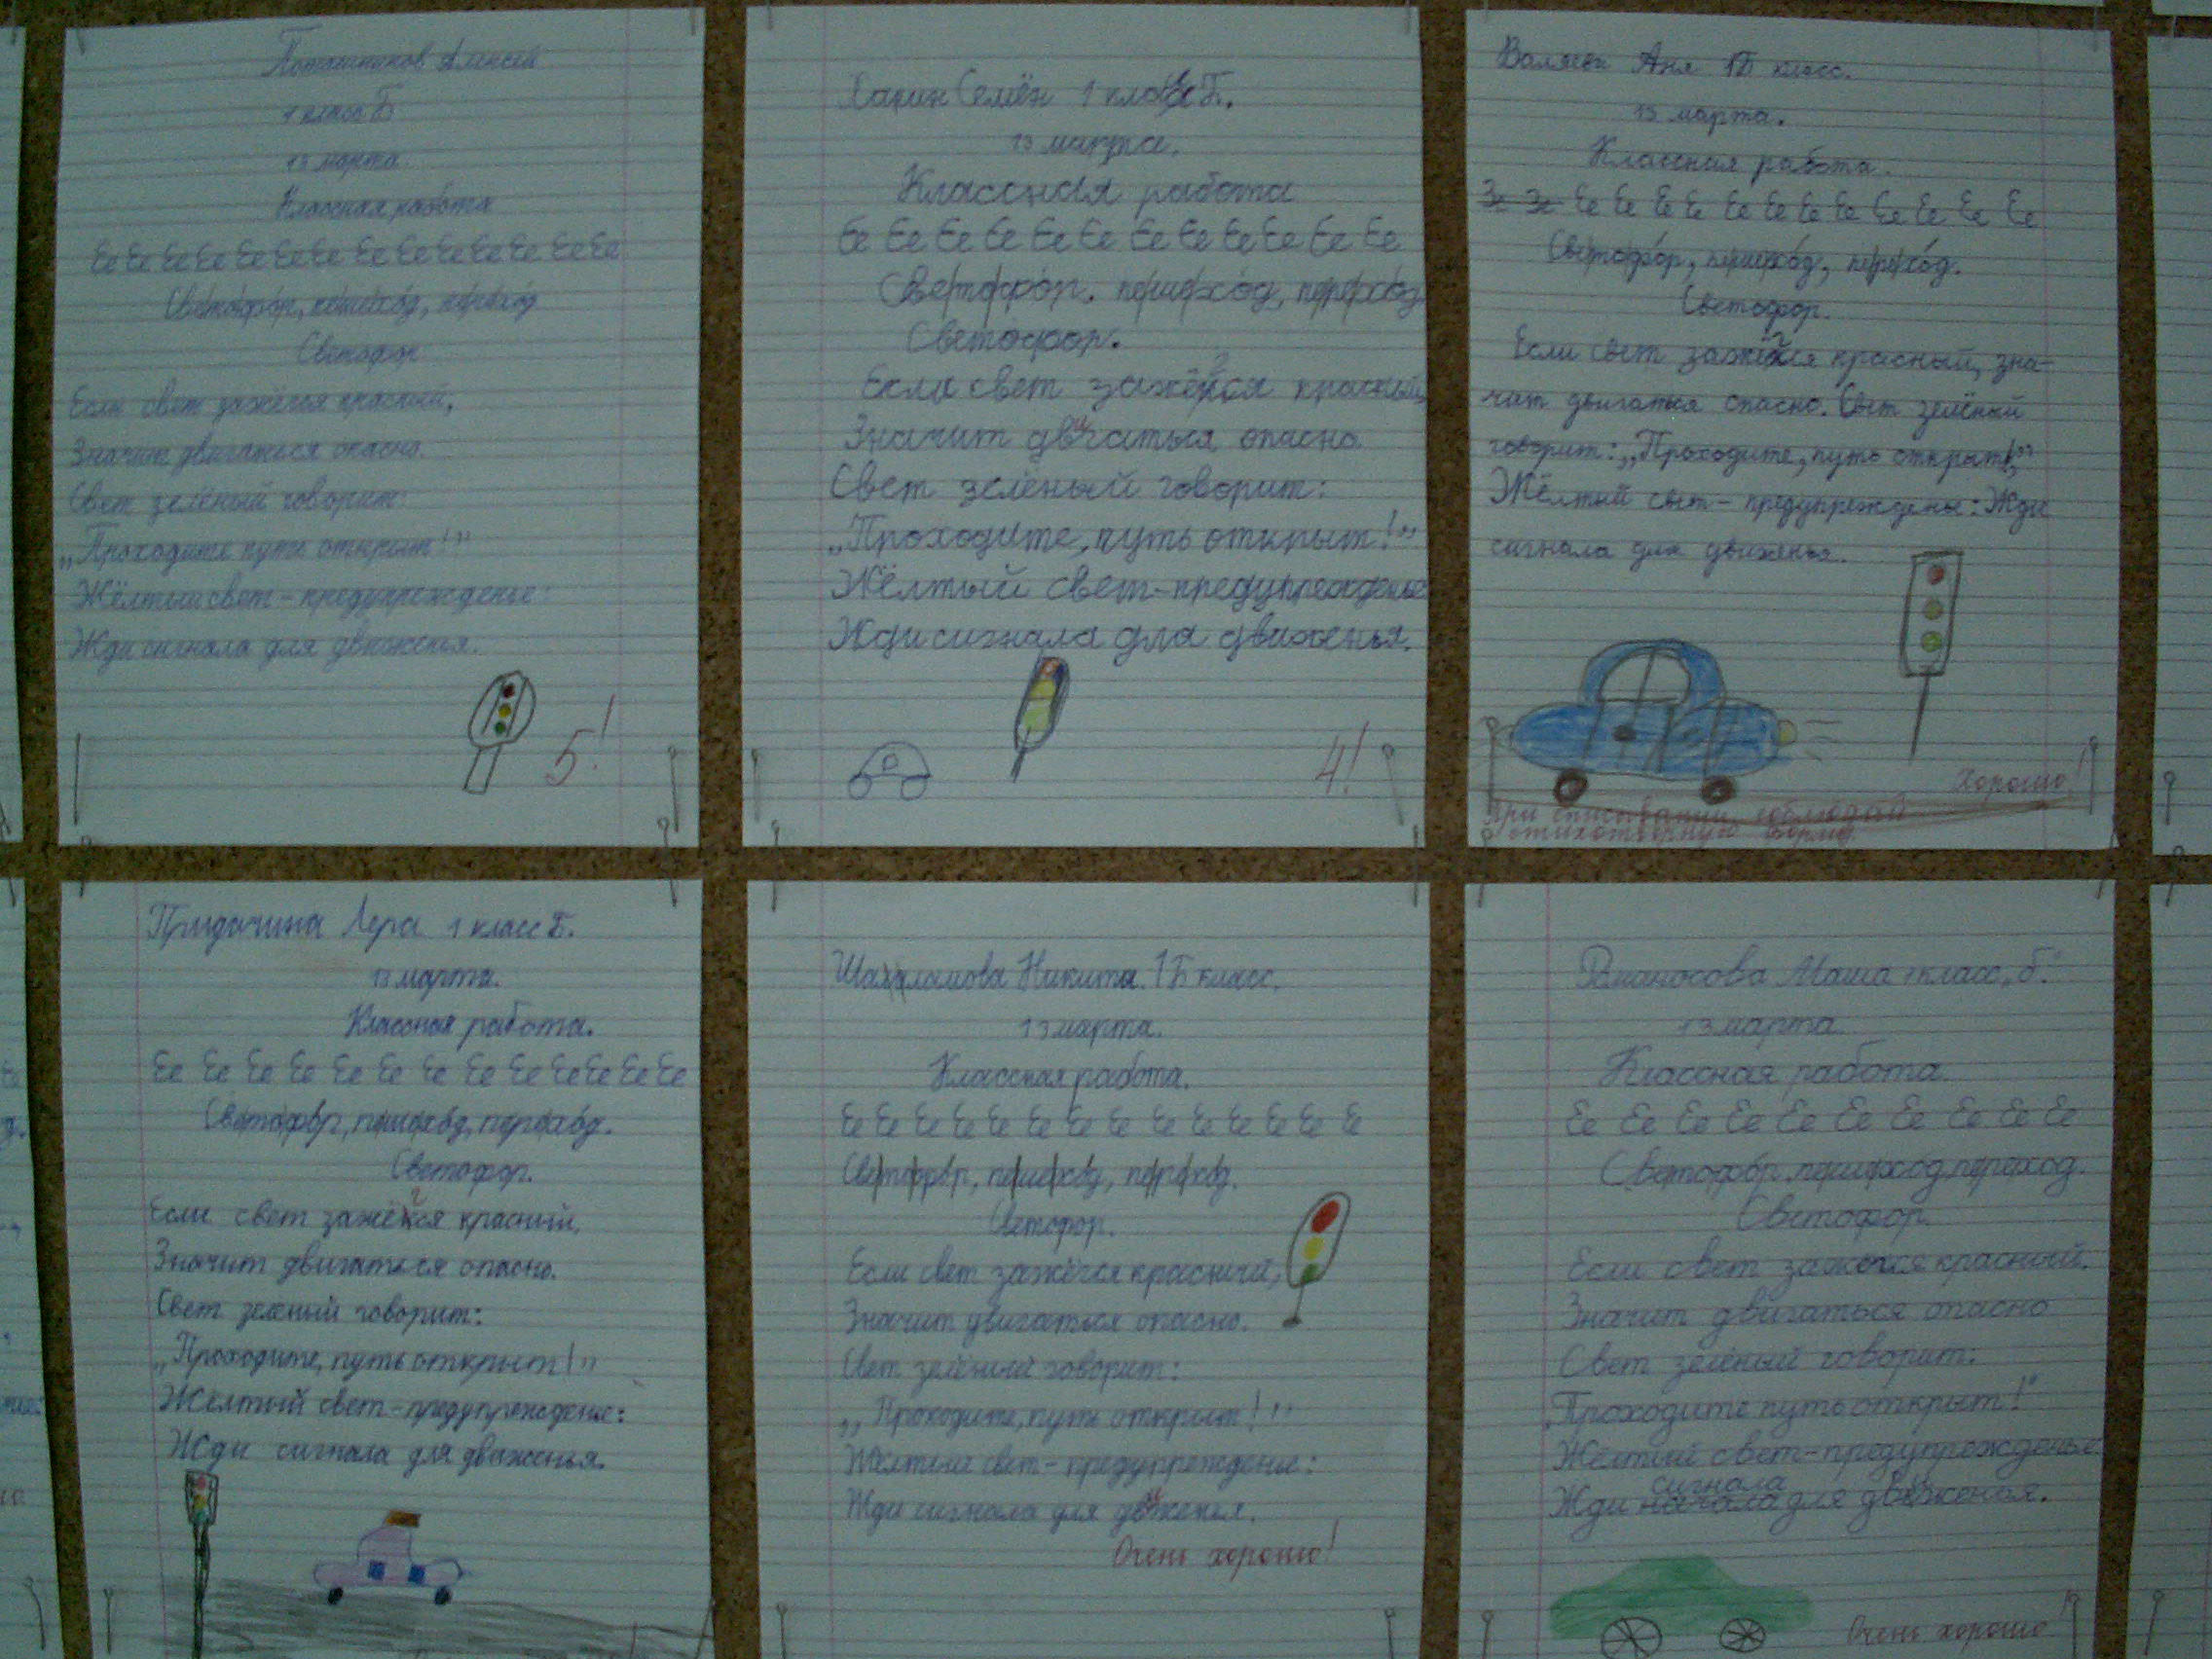 Алексей
1 класс Б
13 марта
Классная работа
Ее Ее Ее Ее Ее Ее Ее Ее Ее Ее Ее Ее Ее Ее
Светофор, пешеход, переход
Светофор
Если свет зажёгся красный,
Значит двигаться опасно.
Свет зелёный говорит:
„Проходите путь открыт!”
Жёлтый свет - предупрежденье:
Жди сигнала для движенья.
5!
Харин Семён 1 класс Б.
13 марта.
Классная работа
Ее Ее Ее Ее Ее Ее Ее Ее Ее Ее Ее Ее
Светофор. пешеход, переход.
Светофор.
Если свет зажёгся красный,
Значит двигаться опасно.
Свет зелёный говорит:
„Проходите, путь открыт!”
Жёлтый свет-предупрежденье
Жди сигнала для движенья.
4!
Аня 1Б класс.
13 марта.
Классная работа.
Ее Ее Ее Ее Ее Ее Ее Ее Ее Ее Ее Ее
Светофор, пешеход, переход.
Светофор.
Если свет зажёгся красный, зна-
чит двигаться опасно. Свет зелёный
говорит: „Проходите, путь открыт!”
Жёлтый свет - предупрежденье: Жди
сигнала для движенья.
Хорошо!
При списывании соблюдай
стихотворную форму.
Придачина Лера 1 класс Б.
13 марта.
Классная работа.
Ее Ее Ее Ее Ее Ее Ее Ее Ее Ее Ее Ее Ее
Светофор, пешеход, переход.
Светофор.
Если свет зажёгся красный,
Значит двигаться опасно.
Свет зеленый говорит:
„Проходите, путь открыт!”
Желтый свет - предупрежденье:
Жди сигнала для движенья.
Никита. 1 Б класс.
13 марта.
Классная работа.
Ее Ее Ее Ее Ее Ее Ее Ее Ее Ее Ее Ее Ее Ее
Светофор, пешеход, переход.
Светофор.
Если свет зажёгся красный,
Значит двигаться опасно.
Свет зелёный говорит:
„Проходите, путь открыт!”
Жёлтый свет - предупрежденье:
Жди сигнала для движенья.
Очень хорошо!
Маша 1 класс „Б.”
13 марта
Классная работа.
Ее Ее Ее Ее Ее Ее Ее Ее Ее Ее
Светофор, пешеход, переход.
Светофор.
Если свет зажегся красный.
Значит двигаться опасно
Свет зелёный говорит:
„Проходите путь открыт!”
Желтый свет-предупрежденье
сигнала
Жди для движенья.
Очень хорошо